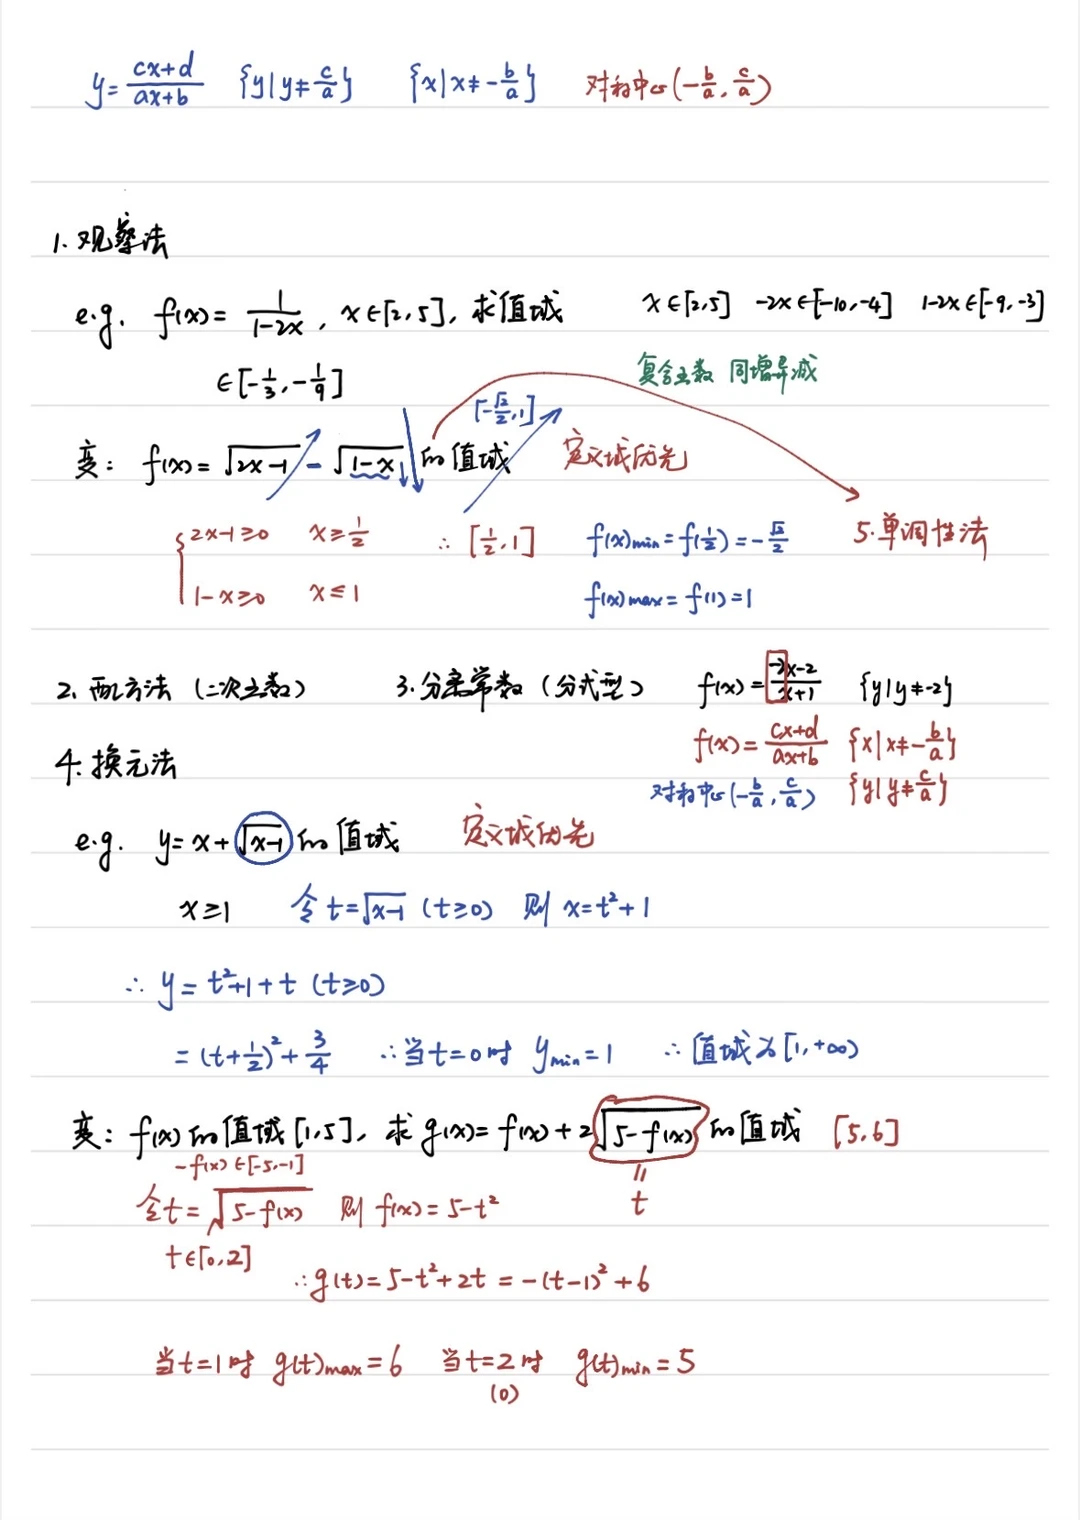 y=\frac{cx+d}{ax+b} {y|y≠\frac{c}{a}} {x|x≠-\frac{b}{a}} 对称中心(-\frac{b}{a},\frac{c}{a})
1.观察法
e.g. f(x)=\frac{1}{1-2x}, x∈[2,5],求值域 x∈[2,5] -2x∈[-10,-4] 1-2x∈[-9,-3]
∈[-\frac{1}{3},-\frac{1}{9}] 复合函数 同增异减
[-\frac{√2}{2},1]
变: f(x)=√(2x-1)-√(1-x)的值域 定义域优先
2x-1≥0 x≥\frac{1}{2} ∴[\frac{1}{2},1] f(x)min=f(\frac{1}{2})=-\frac{√2}{2} 5.单调性法
1-x≥0 x≤1 f(x)max=f(1)=1
2.配方法(二次函数) 3.分离常数(分式型) f(x)=\frac{-2x-2}{x+1} {y|y≠-2}
f(x)=\frac{cx+d}{ax+b} {x|x≠-\frac{b}{a}}
4.换元法 对称中心(-\frac{b}{a},\frac{c}{a}) {y|y≠\frac{c}{a}}
e.g. y=x+√(x-1)的值域 定义域优先
x≥1 令t=√(x-1)(t≥0) 则x=t²+1
∴y=t²+1+t(t≥0)
=(t+\frac{1}{2})²+\frac{3}{4} ∴当t=0时 ymin=1 ∴值域为[1,+∞)
变: f(x)的值域[1,5],求g(x)=f(x)+2√(5-f(x))的值域 [5,6]
-f(x)∈[-5,-1] =
令t=√(5-f(x)) 则f(x)=5-t² t
t∈[0,2]
∴g(t)=5-t²+2t=-(t-1)²+6
当t=1时 g(t)max=6 当t=2时 g(t)min=5
(0)